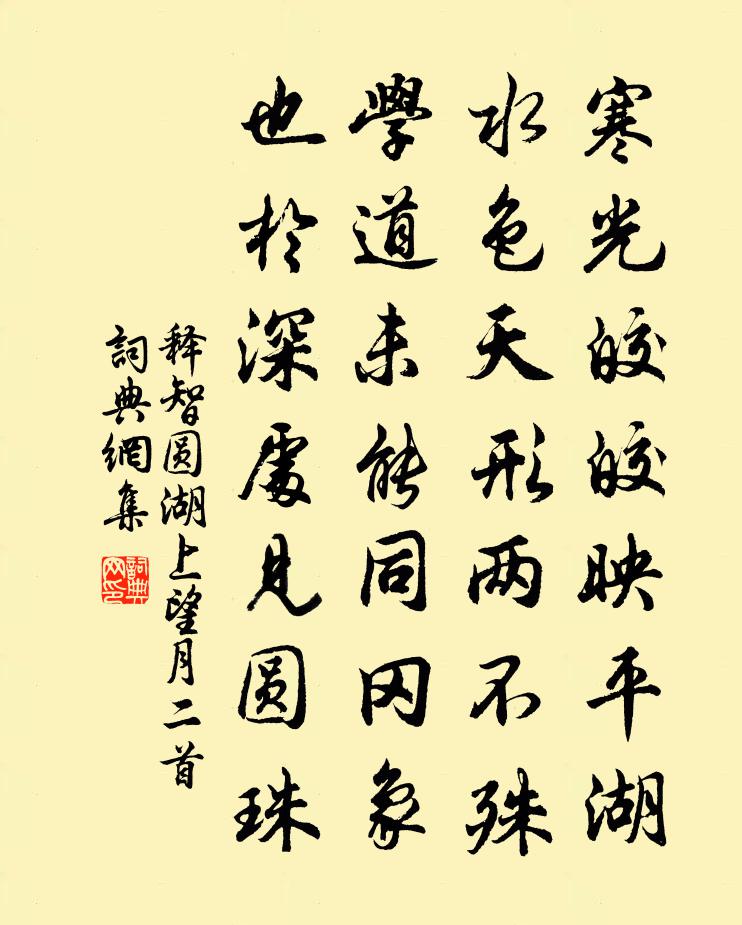 寒光皎皎映平湖
水色天形两不殊
學道未能同罔象
也於深處見圆珠
释智圆湖上望月二首
詞典網集
詞典网印